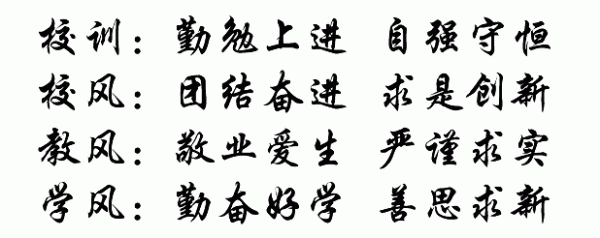 校训：勤勉上进 自强守恒
校风：团结奋进 求是创新
教风：敬业爱生 严谨求实
学风：勤奋好学 善思求新